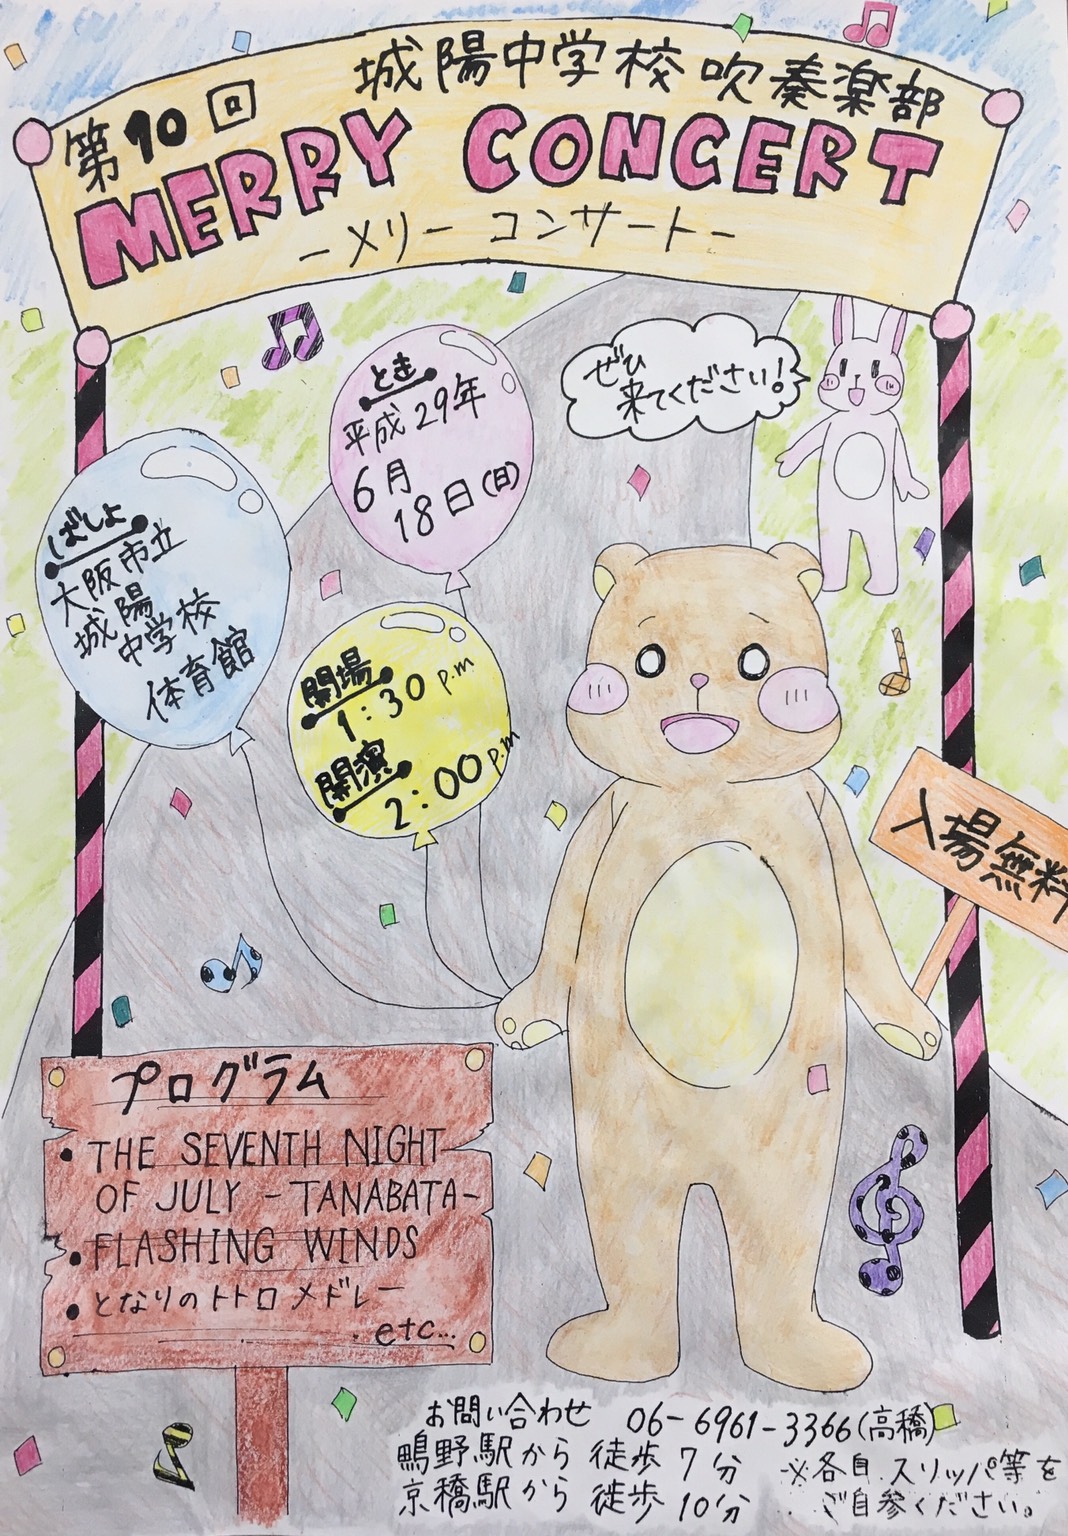 城陽中学校吹奏楽部
第10回
MERRY CONCERT
-メリーコンサート-
ぜひ
来てください!
とき
平成29年
6月
18日(日)
ばしょ
大阪市立
城陽
中学校
体育館
開場
1:30 p.m
開演
2:00 p.m
入場無料
プログラム
・THE SEVENTH NIGHT
OF JULY -TANABATA-
・FLASHING WINDS
・となりのトトロメドレー
etc...
お問い合わせ 06-6961-3366(高橋)
鴫野駅から徒歩7分
京橋駅から徒歩10分
※各自スリッパ等を
ご自参ください。